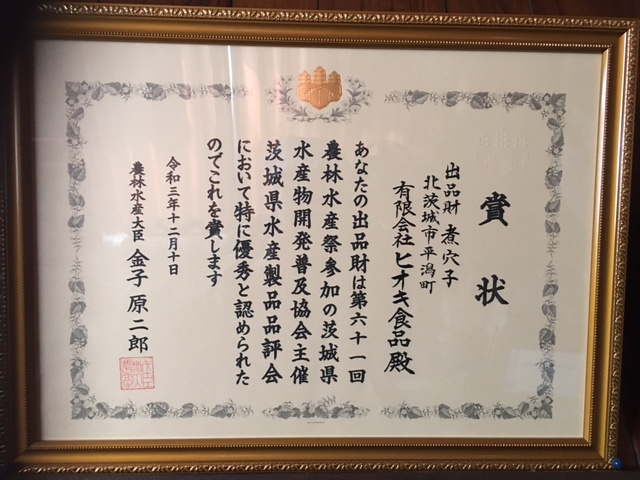 賞状
出品財 煮穴子
北茨城市平潟町
有限会社ヒオキ食品殿
あなたの出品財は第六十一回
農林水産祭参加の茨城県
水産物開発普及協会主催
茨城県水産製品品評会
において特に優秀と認められた
のでこれを賞します
令和三年十二月十日
農林水産大臣 金子原二郎